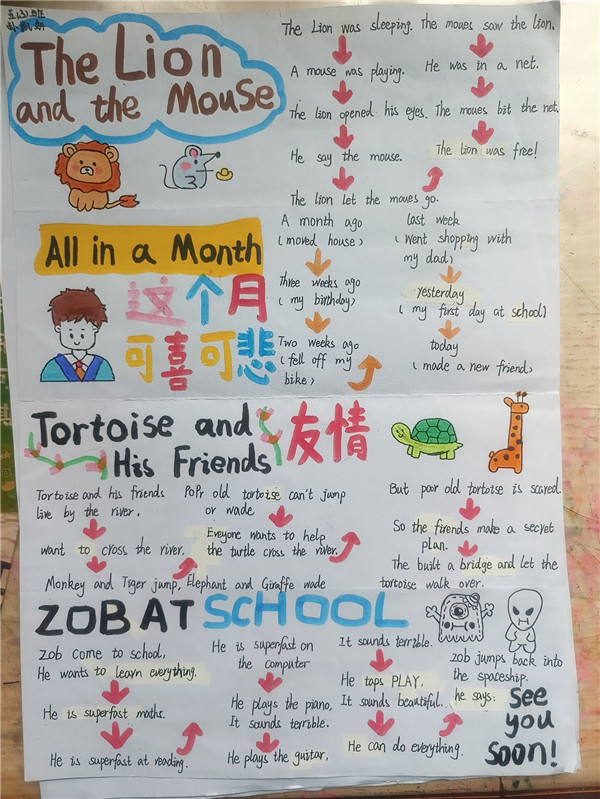 五(3)班
The Lion
and the Mouse
The Lion was sleeping.
A mouse was playing.
The lion opened his eyes.
He say the mouse.
The lion let the moues go.
The moues saw the lion.
He was in a net.
The moues bit the net.
The lion was free!
All in a Month
这个月
可喜可悲
A month ago
(moved house)
Three weeks ago
(my birthday)
Two weeks ago
(fell off my
bike)
last week
(Went shopping with
my dad)
yesterday
(my first day at school)
today
(made a new friend)
Tortoise and
His Friends
友情
Tortoise and his friends
live by the river.
want to cross the river.
Monkey and Tiger jump, Elephant and Giraffe wade
old tortoise can't jump
or wade
Eveyone wants to help
the turtle cross the river.
But poor old tortoise is scared.
So the firends make a secret
plan.
The built a bridge and let the
tortoise walk over.
ZOB AT SCHOOL
Zob come to school,
He wants to learn everything.
He is superfast maths.
He is superfast at reading.
He is superfast on
the computer
He plays the piano,
It sounds terrible.
He plays the guitar,
It sounds terrible.
He taps PLAY,
It sounds beautiful.
He can do everything.
Zob jumps back into
the spaceship.
he says:
See
you
soon!